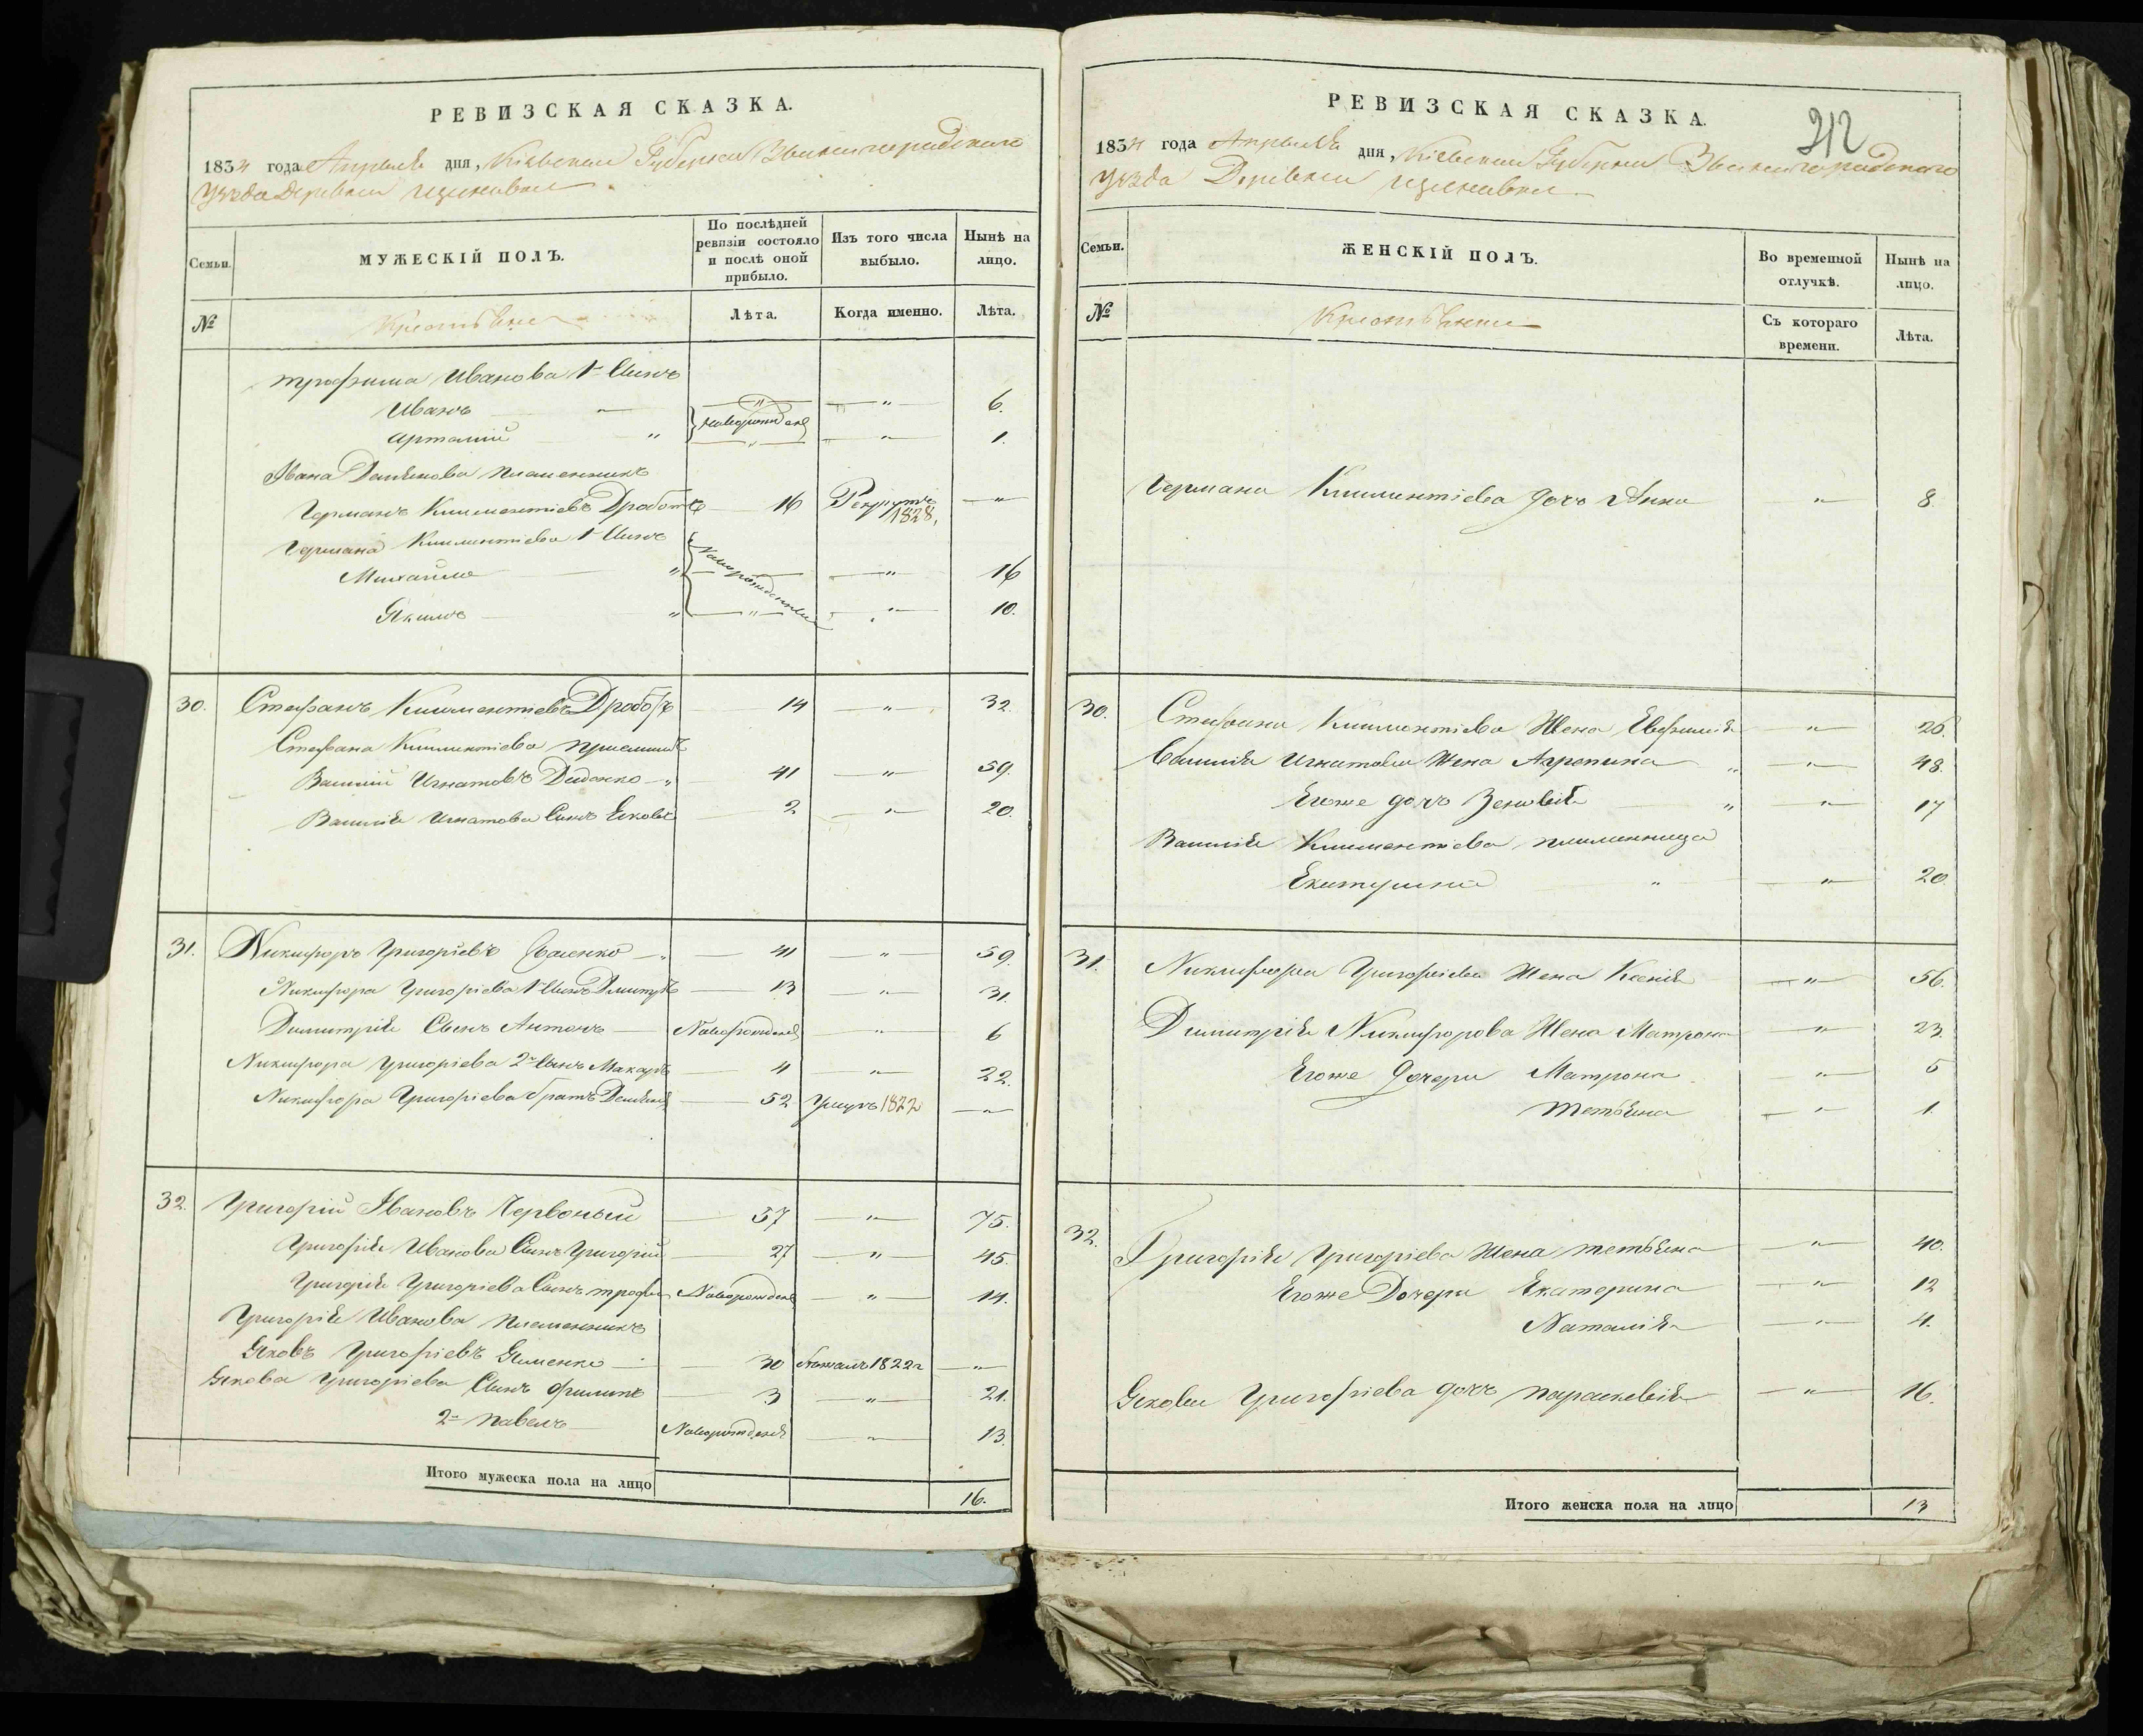 РЕВИЗСКАЯ СКАЗКА.
1834 года Апреля дня, Кіевской Губерніи Звенигородскаго
Уезда Деревни
Семьи.
МУЖЕСКІЙ ПОЛЪ.
По послѣдней ревизіи состояло и послѣ оной прибыло.
Изъ того числа выбыло.
Нынѣ на лицо.
№
Лѣта.
Когда именно.
Лѣта.
Трофима Иванова 1й Сынъ
Иванъ " новорожден " 6.
Артемій " " " 1.
Ивана Демянова племенникъ
Германъ Климентіевъ Дроботъ 16 Рекрутъ 1828, "
Германа Климентіева 1й Сынъ
Михайло " Новорожденныи " 16
Якимъ " " " 10.
30. Стефанъ Климентіевъ Дроботъ 14 " 32.
Стефана Климентіева приемышъ
Василій Игнатовъ Диденко " 41 " 59.
Василія Игнатова Сынъ 2 " 20.
31. Никифоръ Григоріевъ 41 " 59.
Никифора Григоріева 1й Сынъ Дмитрій 13 " 31.
Димитрія Сынъ Антонъ Новорожден " 6
Никифора Григоріева 2й Сынъ Макаръ 4 " 22.
Никифора Григоріева братъ Демянъ 52 Умеръ 1822 "
32. Григорій Ивановъ Червоный 57 " 75.
Григорія Иванова Сынъ Григорій 27 " 45.
Григорія Григоріева Сынъ трофим Новорожден " 14.
Григорія Иванова племенникъ
Яковъ Григоріевъ 30 1822 "
Якова Григоріева Сынъ Филипъ 3 " 21.
2й Павелъ Новорожден " 13.
Итого мужеска пола на лицо 16.
РЕВИЗСКАЯ СКАЗКА.
212
1834 года Апреля дня, Кіевской Губерніи Звенигородскаго
Уезда Деревни
Семьи.
ЖЕНСКІЙ ПОЛЪ.
Во временной отлучкѣ.
Нынѣ на лицо.
№
Съ котораго времени.
Лѣта.
Германа Климентіева дочь Анна " 8
30. Стефана Климентіева Жена Евфимія " 26.
Василія Игнатова Жена Агрепина " " 48
Егоже дочь Зеновія " " 17
Василія Климентіева племенница
Екатерина " " 20
31. Никифора Григоріева Жена Ксенія " 56.
Димитрія Никифорова Жена Матрона " 23.
Егоже Дочери Матрона " 5
Метьяна " 1.
32. Григорія Григоріева Жена Тетьяна " 40.
Егоже Дочери Екатерина " 12
Наталія " 4.
Якова Григоріева дочь параскевія " 16.
Итого женска пола на лицо 13